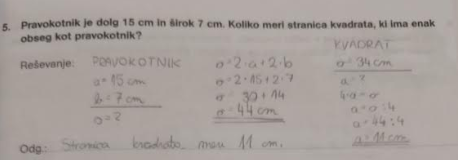 5. Pravokotnik je dolg 15 cm in širok 7 cm. Koliko meri stranica kvadrata, ki ima enak
obseg kot pravokotnik?
Reševanje: PRAVOKOTNIK
a = 15 cm
b = 7 cm
o = ?
o = 2·a + 2·b
o = 2·15 + 2·7
o = 30 + 14
o = 44 cm
KVADRAT
o = 34 cm
a = ?
4·a = o
a = o : 4
a = 44 : 4
a = 11 cm
Odg.: Stranica kvadrata meri 11 cm.